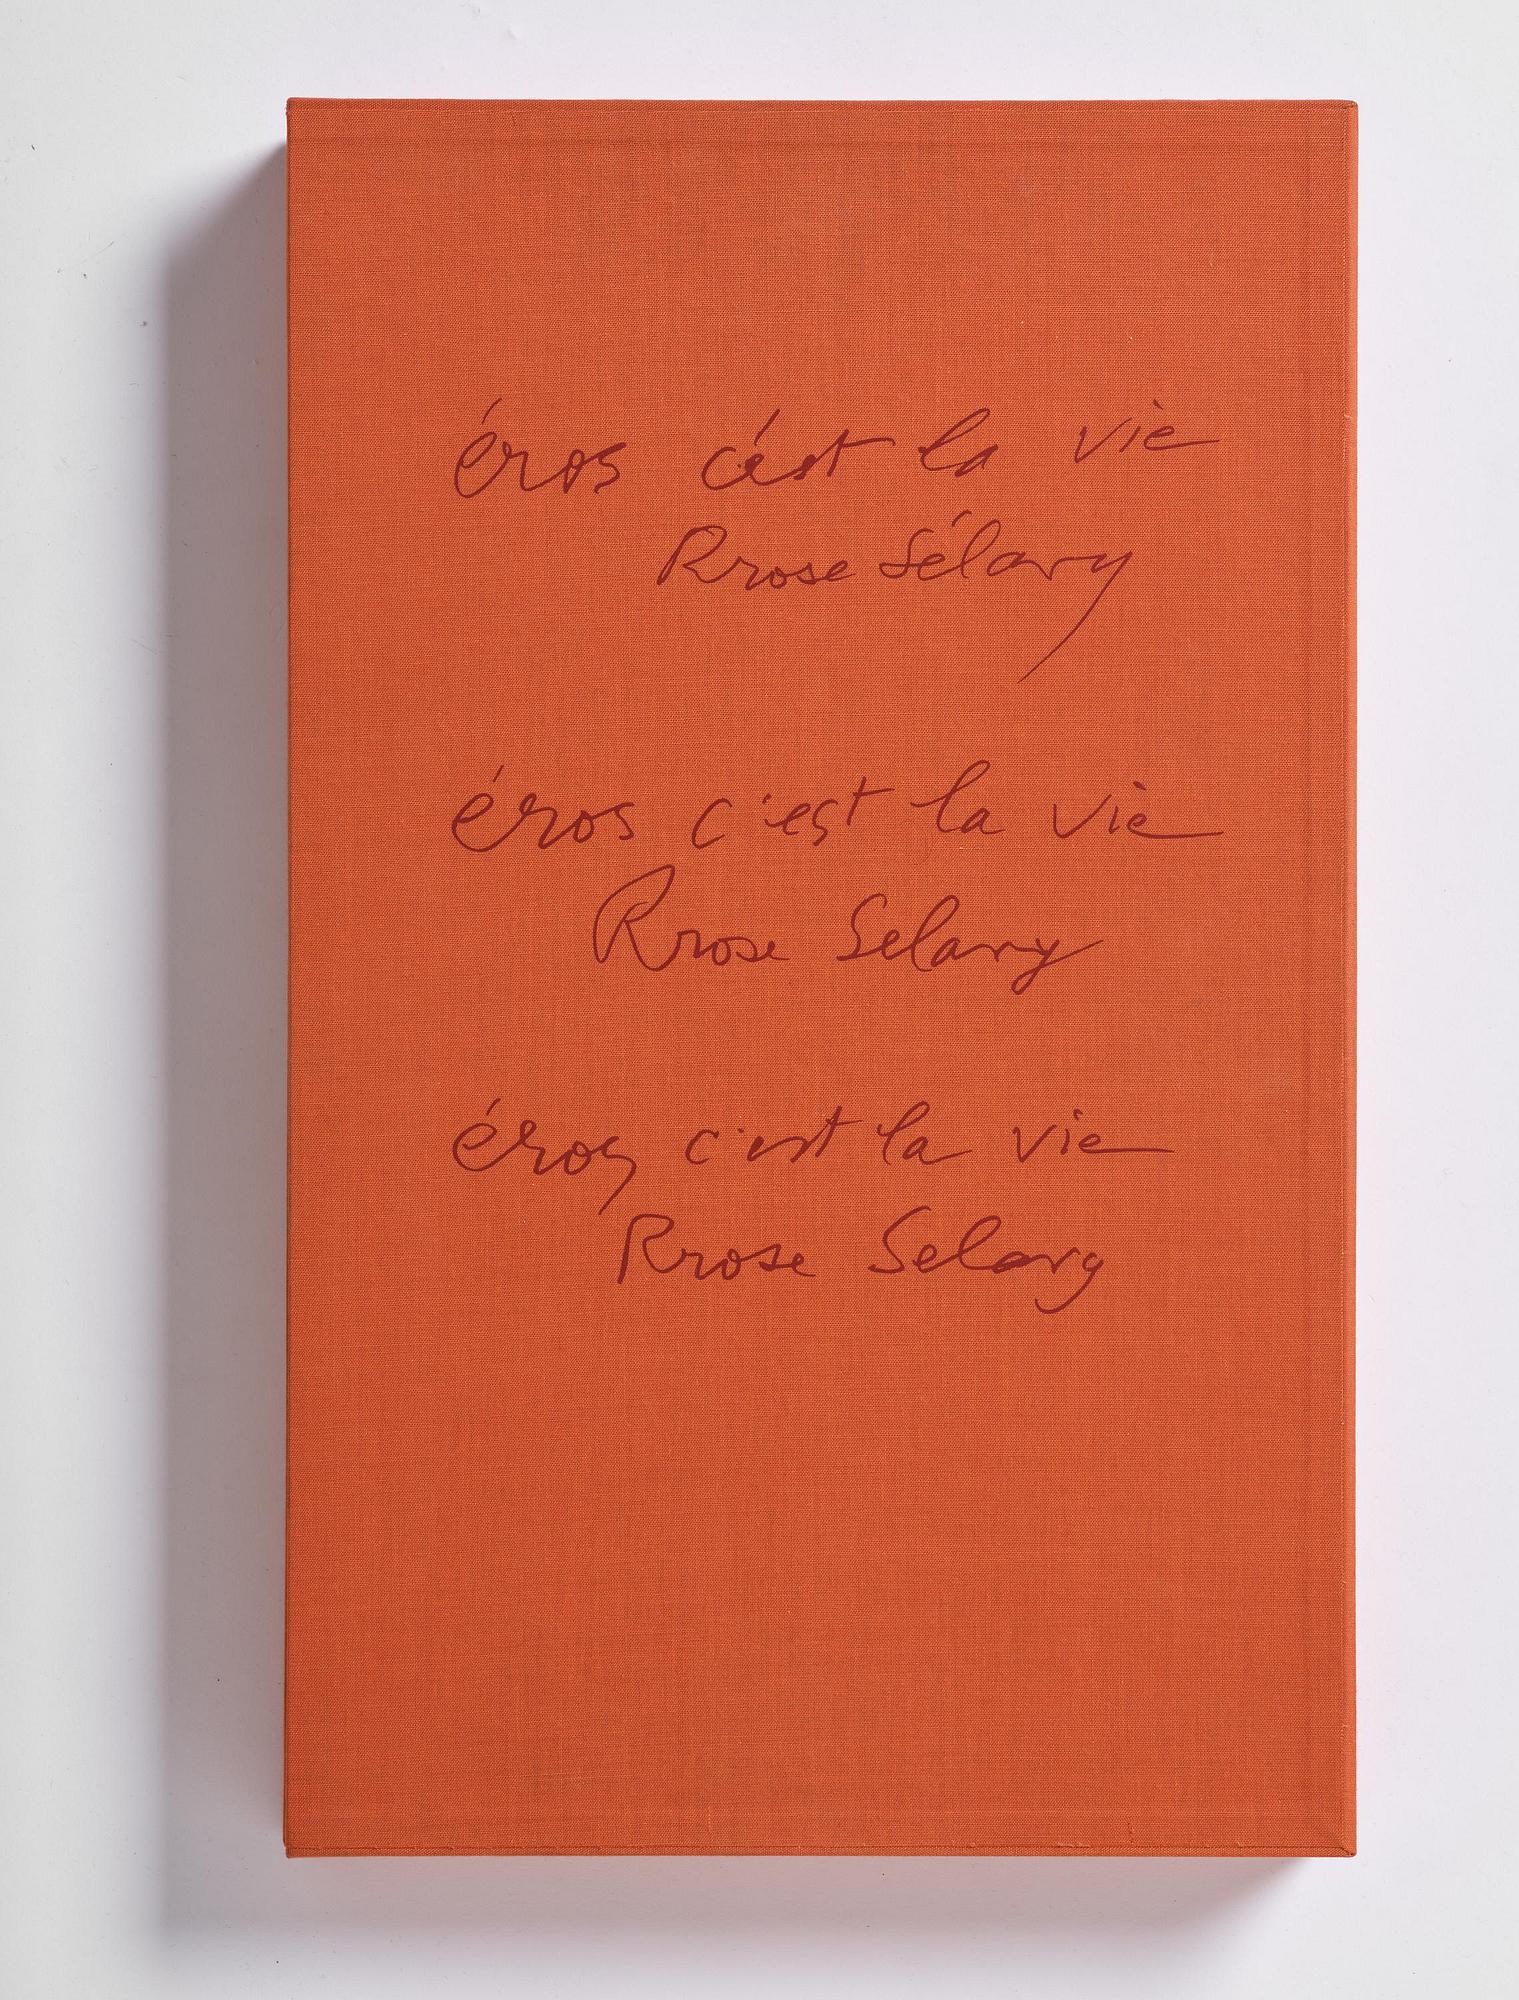 éros c'est la vie
Rrose Sélavy
éros c'est la vie
Rrose Selavy
éros c'est la vie
Rrose Selavy